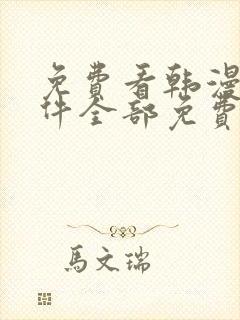 免费看韩漫
件全部免费
馬文瑞